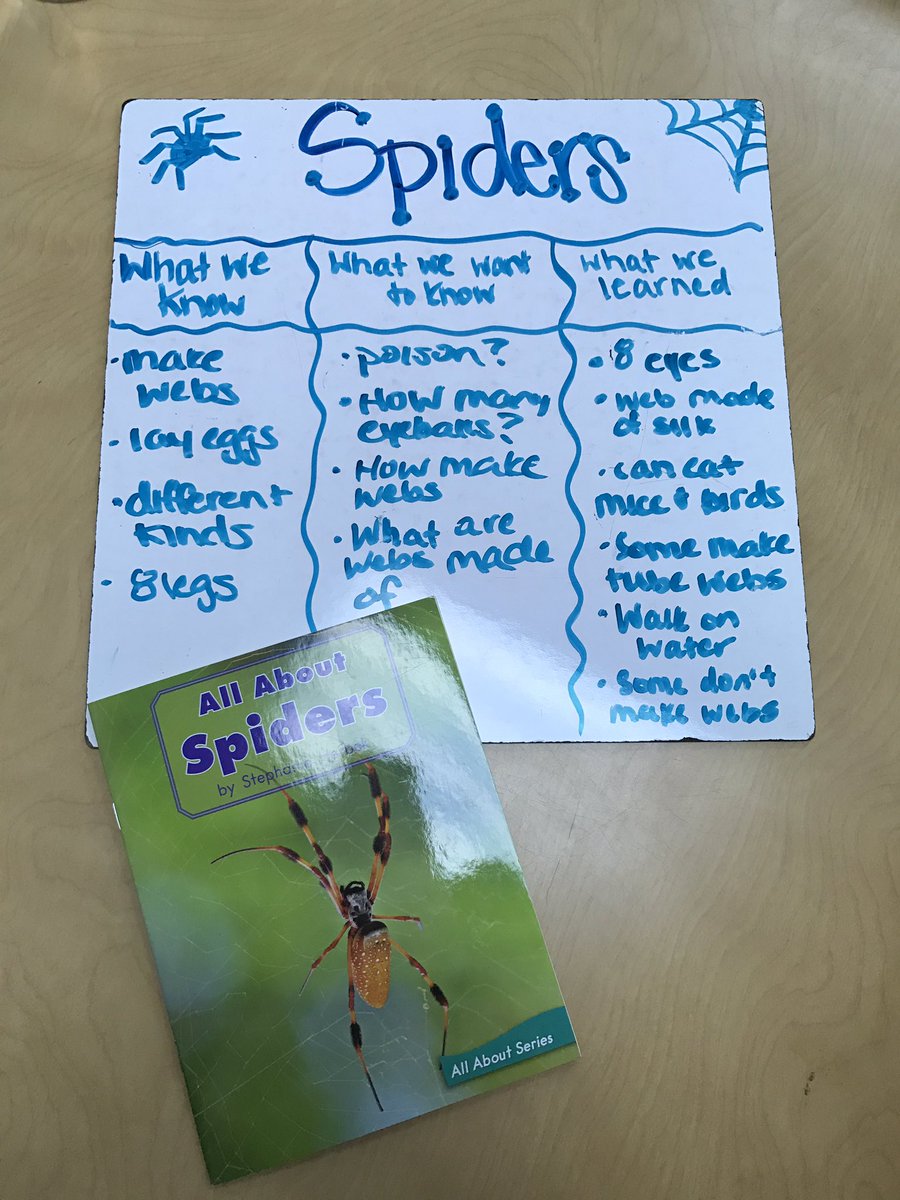 Spiders
What we
know
What we want
to know
What we
learned
• make
webs
• lay eggs
• different
kinds
• 8 legs
• poison?
• How many
eyeballs?
• How make
webs
• What are
webs made
of
• 8 eyes
• web made
of silk
• can eat
mice + birds
• Some make
tube webs
• Walk on
water
• Some don't
make webs
All About
Spiders
by
All About Series